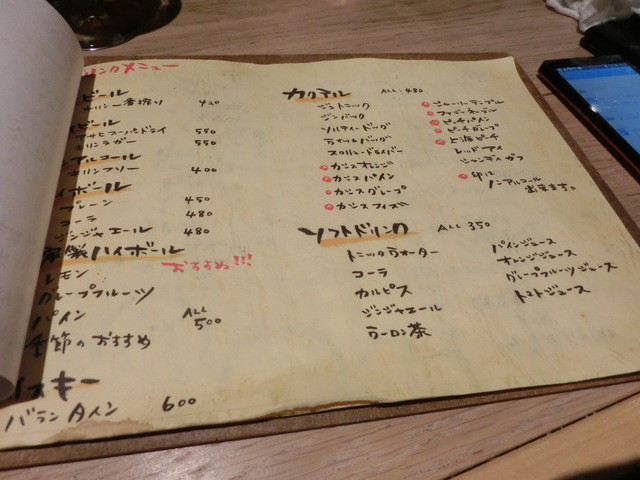 リンクメニュー
ビール
キリン一番搾り 420
ビール
アサヒスーパードライ 550
キリンラガー 550
ンアルコール
キリンフリー 400
イボール
プレーン 450
コーラ 480
ジンジャエール 480
ハイボール
おすすめ!!!
レモン
グレープフルーツ
パイン
ALL 500
季節のおすすめ
スキー
バランタイン 600
カクテル ALL:480
ジントニック
ジンバック
ソルティードッグ
スクリュードライバー
カシスオレンジ
カシスパイン
カシスグレープ
カシスフィズ
シャーリーテンプル
ファジーネーブル
ピーチパイン
ピーチグレープ
上海ピーチ
レッドアイ
シャンディガフ
印は
ノンアルコール
出来ます。
ソフトドリンク ALL 350
トニックウォーター
コーラ
カルピス
ジンジャエール
ウーロン茶
パインジュース
オレンジジュース
グレープフルーツジュース
トマトジュース